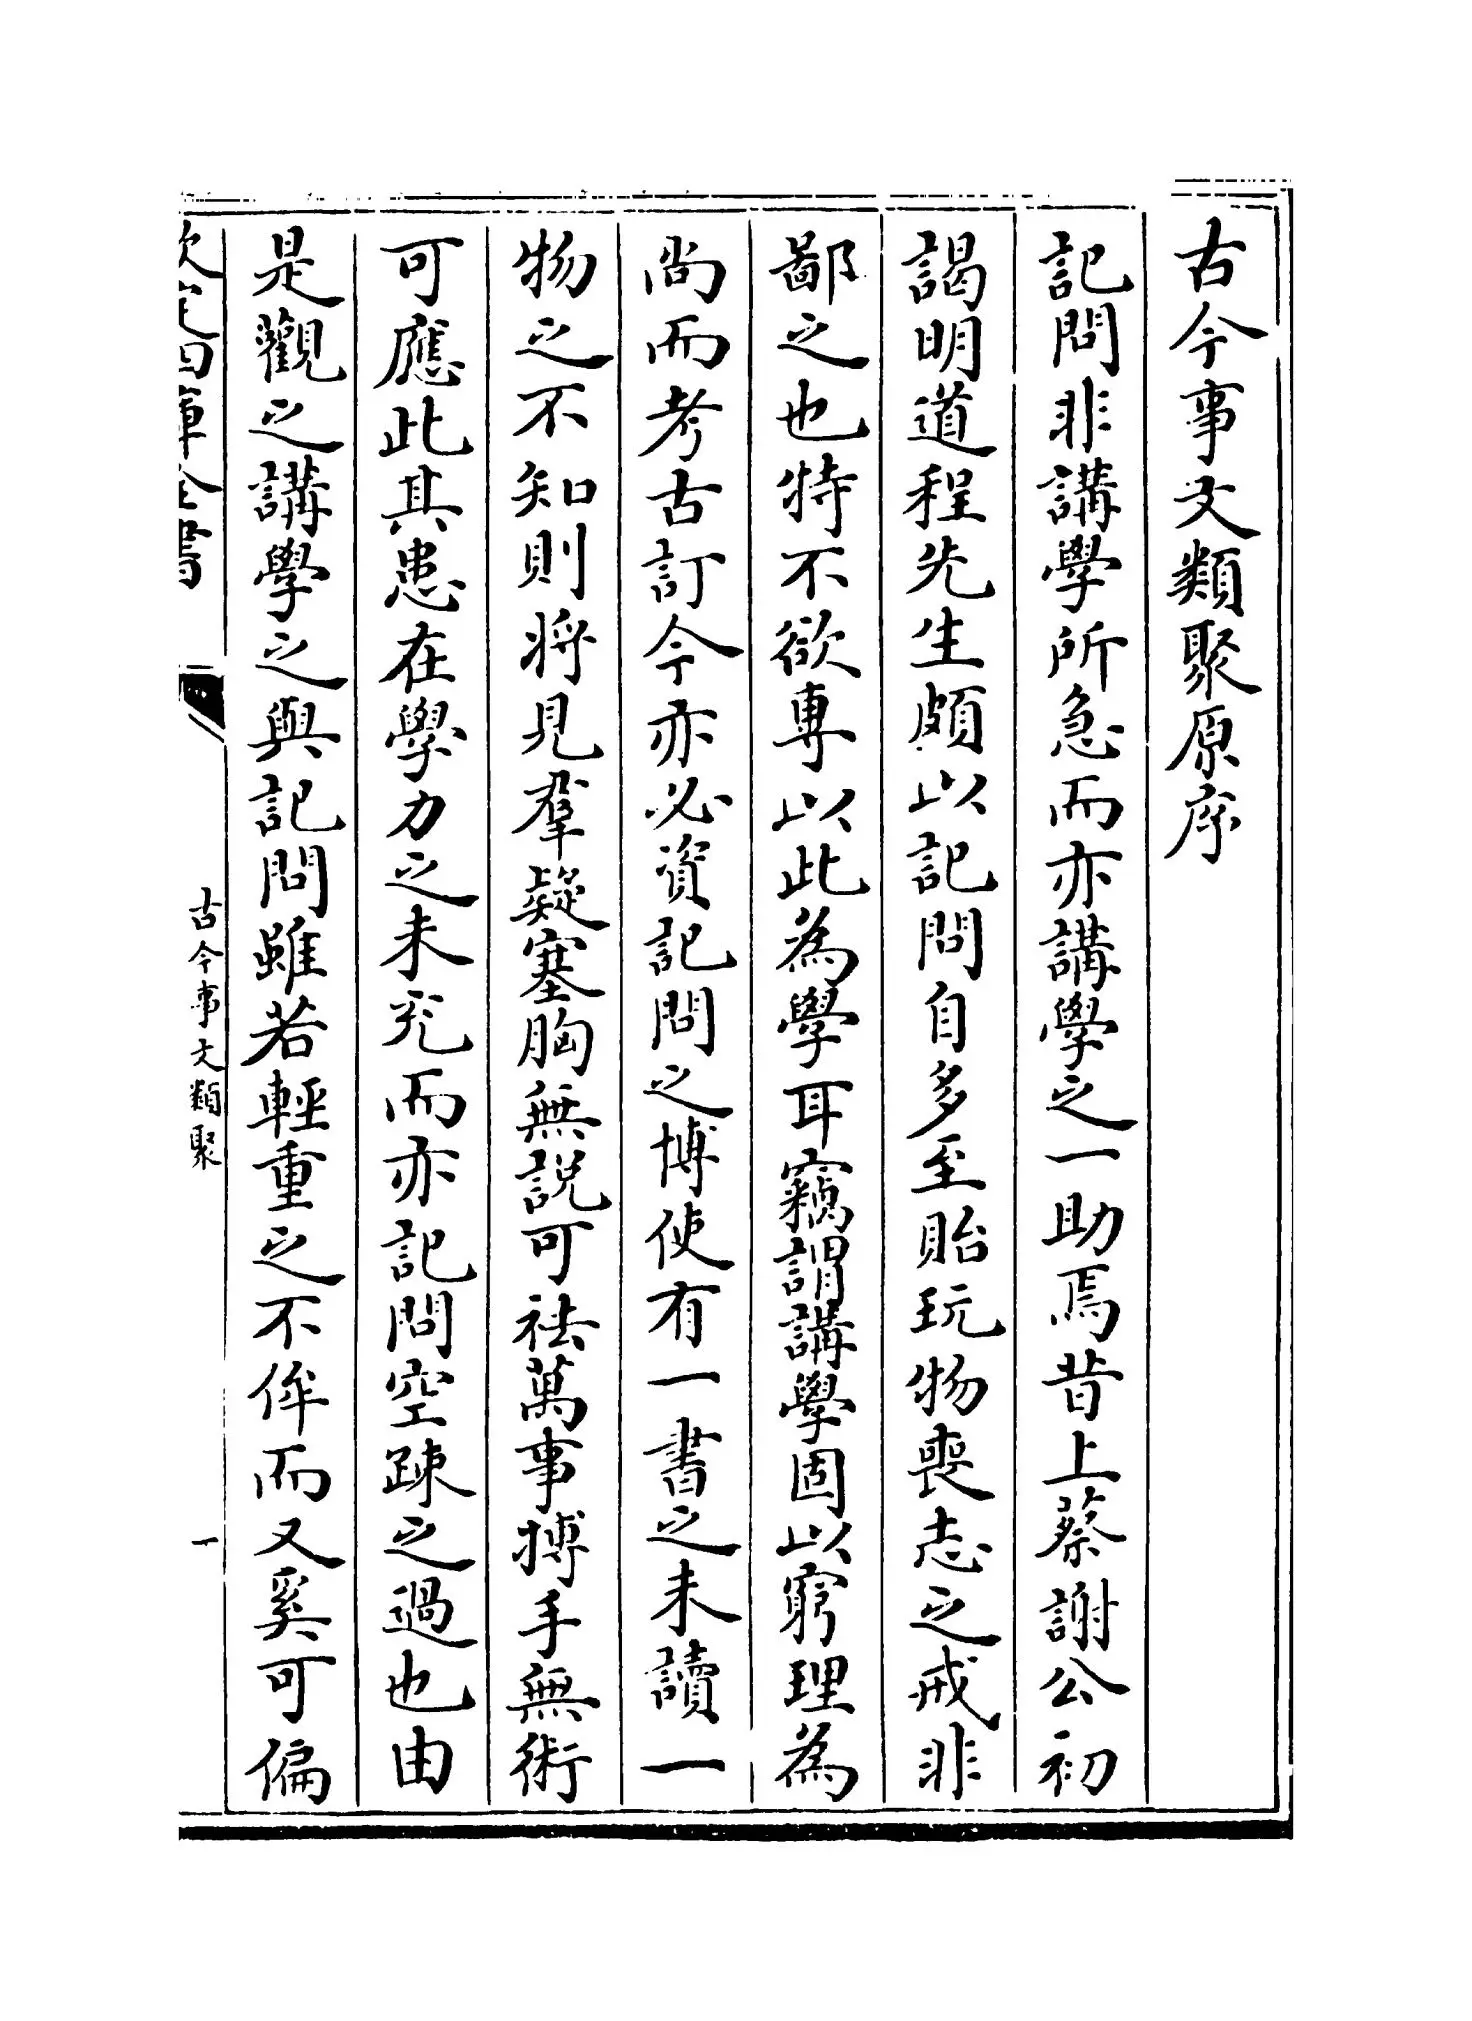 古今事文類聚原序
記問非講學所急而亦講學之一助焉昔上蔡謝公初
謁明道程先生頗以記問自多至貽玩物喪志之戒非
鄙之也特不欲專以此為學耳竊謂講學固以窮理為
尚而考古訂今亦必資記問之博使有一書之未讀一
物之不知則將見羣疑塞胸無説可祛萬事搏手無術
可應此其患在學力之未充而亦記問空疎之過也由
是觀之講學之與記問雖若輕重之不侔而又奚可偏
欽定四庫全書
古今事文類聚
一